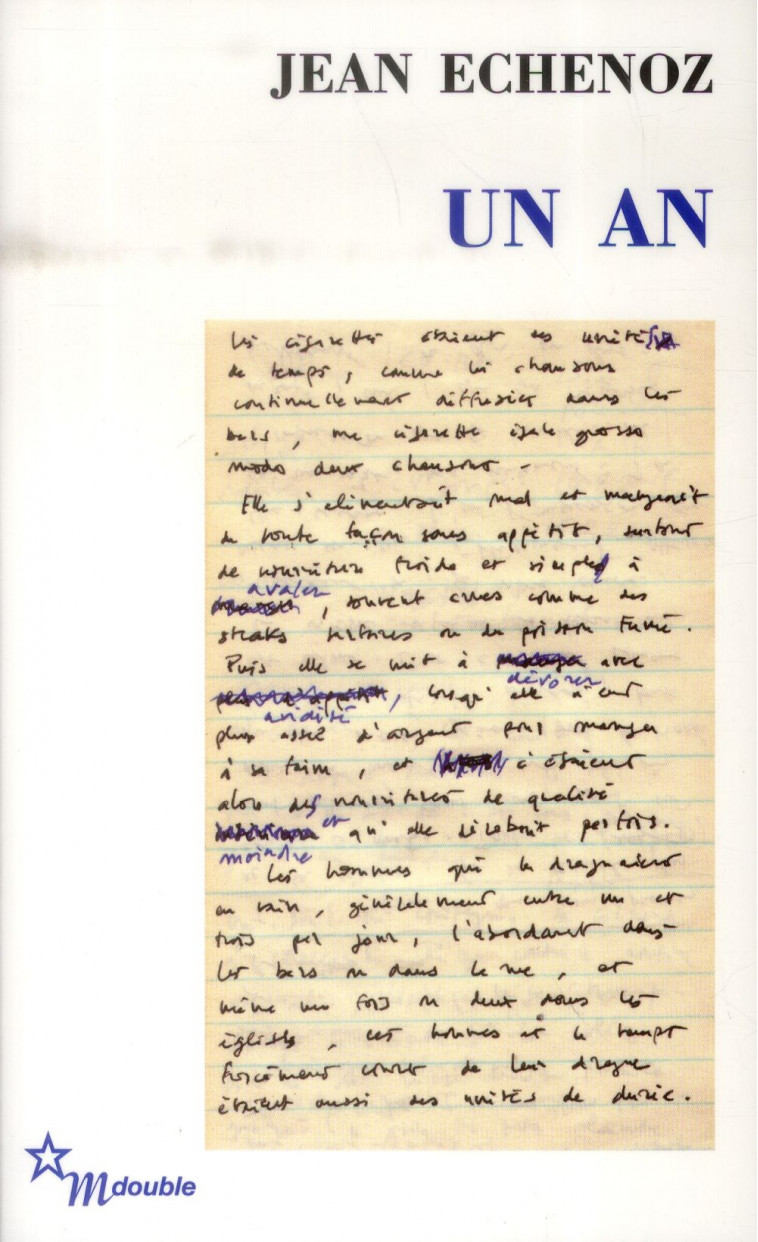 JEAN ECHENOZ
UN AN
Les cigarettes étaient des unités
de temps, comme les chansons
continuellement diffusées dans les
bars, une cigarette égale grosso
modo deux chansons -
Elle s'alimentait mal et mangeait
de toute façon sans appétit, surtout
de nourriture froide et simple à
avaler
, souvent crues comme des
steaks tartares ou du poisson fumé.
Puis elle se mit à avec
dévorer
, lorsqu'elle n'eut
avidité
plus assez d'argent pour manger
à sa faim, et c'étaient
alors des nourritures de qualité
et qu'elle dérobait parfois.
moindre
Les hommes qui la draguaient
en vain, généralement entre un et
trois par jour, l'abordant dans
les bars ou dans la rue, et
même une fois ou deux dans les
églises, ces hommes et le temps
forcément court de leur drague
étaient aussi des unités de durée.
M double